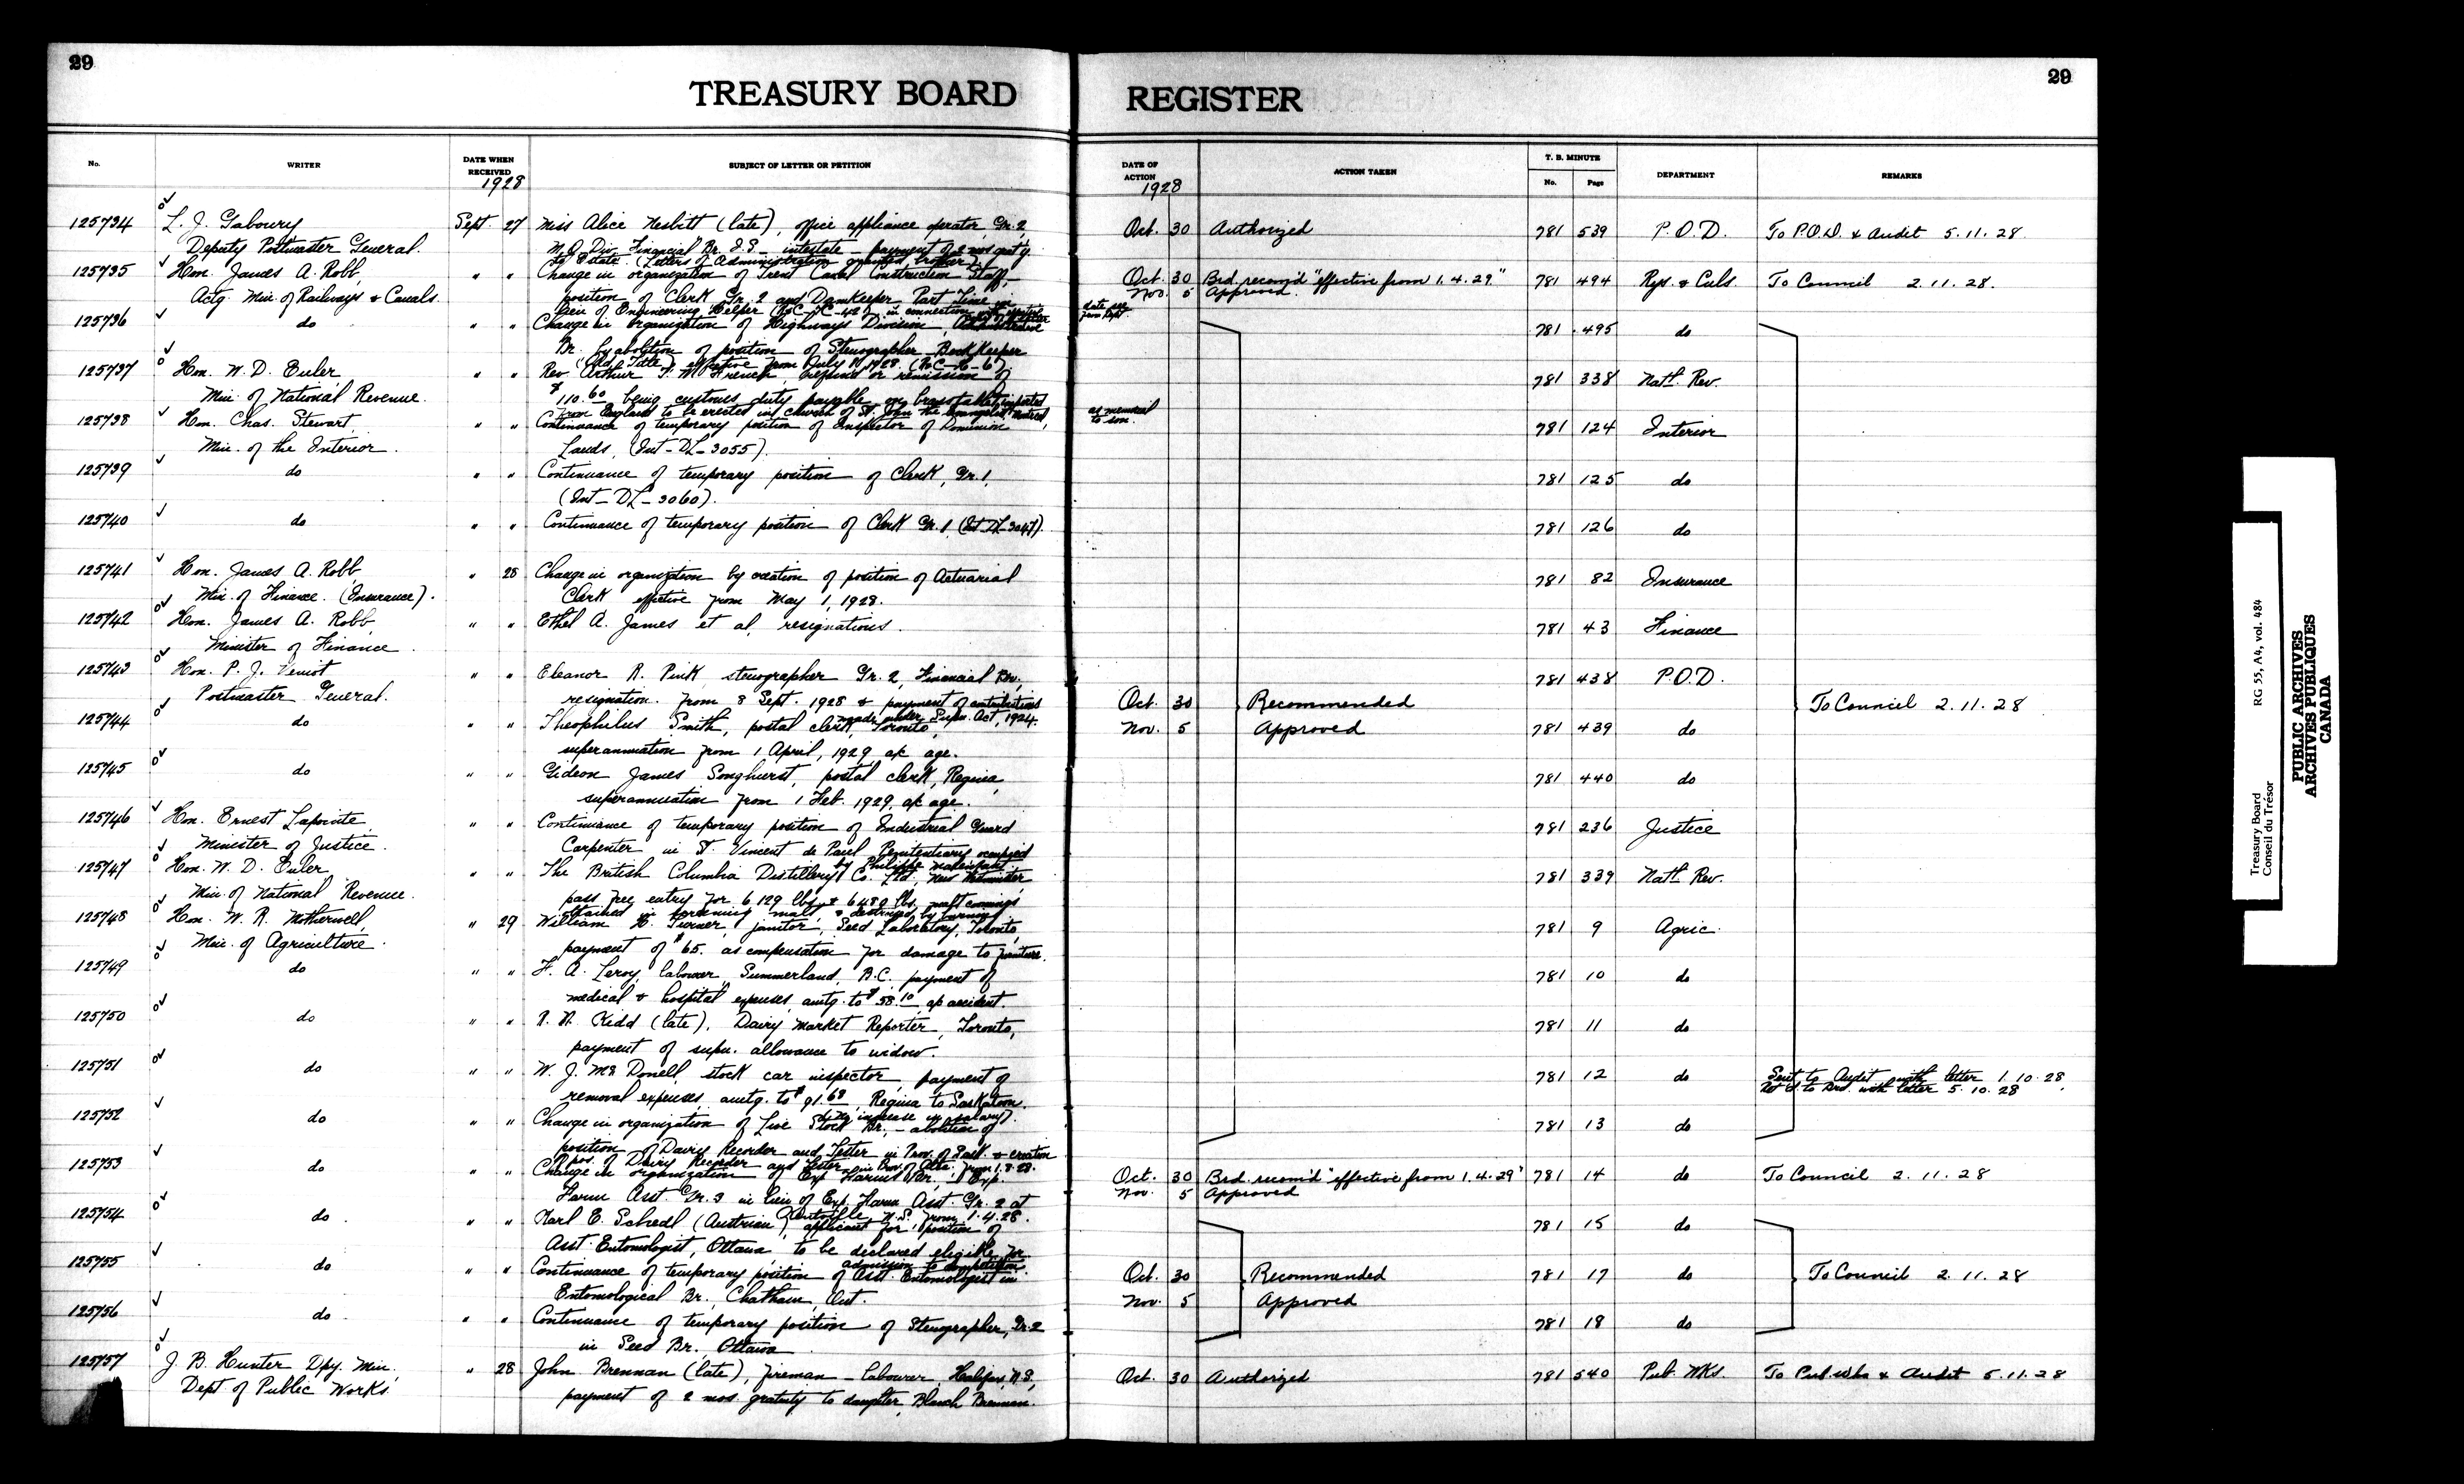 29
TREASURY BOARD REGISTER
29
No. WRITER DATE WHEN RECEIVED SUBJECT OF LETTER OR PETITION DATE OF ACTION ACTION TAKEN T. B. MINUTE No. Page DEPARTMENT REMARKS
1928 1928
125734 L. J. Gaboury Sept. 27 Miss Alice Nesbitt (late), office appliance operator Gr. 2 Oct. 30 Authorized 781 539 P.O.D. To P.O.D. & Audit 5.11.28
Deputy Postmaster General. M.O. Div. Financial Br. I.S. intestate payment of 2 mos grat'y
to Estate (Letters of Administration granted brother)
125735 Hon. James A. Robb, " " Change in organization of Trent Canal Construction Staff, Oct. 30 Brd. recom'd "effective from 1.4.29" 781 494 Rys. & Culs. To Council 2.11.28.
Actg. Min. of Railways & Canals. position of Clerk Gr. 2 and Damkeeper Part Time in Nov. 5 Approved.
lieu of Engineering Helper in connection date per from Dept.
125736 do " " Change in organization of Highways Division, Administrative 781 495 do
Br. by abolition of position of Stenographer BookKeeper
effective from July 1928. (R.C-H-6)
125737 Hon. W. D. Euler " " Rev. Arthur P. M. French, refund or remission of 781 338 Natl. Rev.
Min. of National Revenue. $110.60 being customs duty payable on brass tablet imported
from England to be erected in church of St. John the Evangelist Montreal, as memorial to son.
125738 Hon. Chas. Stewart, " " Continuance of temporary position of Inspector of Dominion 781 124 Interior
Min. of the Interior. Lands, (Int-DL-3055).
125739 do " " Continuance of temporary position of Clerk, Gr. 1, 781 125 do
(Int-DL-3060).
125740 do " " Continuance of temporary position of Clerk Gr. 1, (Int-DL-3047). 781 126 do
125741 Hon. James A. Robb " 28 Change in organization by creation of position of Actuarial 781 82 Insurance
Min. of Finance. (Insurance). Clerk effective from May 1, 1928.
125742 Hon. James A. Robb, " " Ethel A. James et al, resignations. 781 43 Finance
Minister of Finance.
125743 Hon. P. J. Veniot " " Eleanor R. Pink, stenographer Gr. 2, Financial Br., 781 438 P.O.D.
Postmaster General. resignation from 8 Sept. 1928 & payment of contributions Oct. 30 Recommended To Council 2.11.28
made under Supn. Act, 1924.
125744 do " " Theophilus Smith, postal clerk, Toronto, Nov. 5 Approved 781 439 do
superannuation from 1 April, 1929, a/c age.
125745 do " " Gideon James Songhurst, postal clerk, Regina, 781 440 do
superannuation from 1 Feb. 1929, a/c age.
125746 Hon. Ernest Lapointe " " Continuance of temporary position of Industrial Guard 781 236 Justice
Minister of Justice. Carpenter in St. Vincent de Paul Penitentiary occupied
by Philippe
125747 Hon. W. D. Euler, " " The British Columbia Distillery Co. Ltd., New Westminster, 781 339 Natl. Rev.
Min. of National Revenue. pass free entry for 6129 lbs. & 6480 lbs. malt combings
obtained in screening malt, & destroyed by burning.
125748 Hon. W. R. Motherwell, " 29 William H. Turner, janitor, Seed Laboratory, Toronto, 781 9 Agric.
Min. of Agriculture. payment of $65. as compensation for damage to furniture.
125749 do " " F. A. Leroy, labourer, Summerland, B.C. payment of 781 10 do
medical & hospital expenses, amtg. to $58.10 a/c accident.
125750 do " " R. R. Kidd (late), Dairy Market Reporter, Toronto, 781 11 do
payment of supn. allowance to widow.
125751 do " " W. J. McDonell, stock car inspector, payment of 781 12 do Sent to Audit with letter 1.10.28
removal expenses amtg. to $91.68 Regina to Saskatoon. Ret'd to Brd. with letter 5.10.28
(no increase in salary).
125752 do " " Change in organization of Live Stock Br., - abolition of 781 13 do
position of Dairy Recorder and Tester in Prov. of Sask. & creation
of pos. of Dairy Recorder and Tester in Prov. of Alta. from 1.8.28.
125753 do " " Change in organization of Exp. Farms Br., - 1 Exp. Oct. 30 Brd. recom'd "effective from 1.4.29" 781 14 do To Council 2.11.28
Farm Asst. Gr. 3 in lieu of Exp. Farm Asst. Gr. 2 at Nov. 5 Approved
Kentville, N.S. from 1.4.28.
125754 do " " Karl E. Schedl (Austrian), applicant for position of 781 15 do
Asst. Entomologist, Ottawa to be declared eligible for
admission to competition
125755 do " " Continuance of temporary position of Asst. Entomologist in Oct. 30 Recommended 781 17 do To Council 2.11.28
Entomological Br., Chatham, Ont. Nov. 5 Approved
125756 do " " Continuance of temporary position of Stenographer, Gr. 2 781 18 do
in Seed Br., Ottawa
125757 J. B. Hunter Dpy. Min. " 28 John Brennan (late), fireman - labourer, Halifax, N.S., Oct. 30 Authorized 781 540 Pub. Wks. To Pub Wks & Audit 5.11.28
Dept. of Public Works. payment of 2 mos. gratuity to daughter, Blanch Brennan.
Treasury Board RG 55, A4, vol. 484
Conseil du Trésor
PUBLIC ARCHIVES
ARCHIVES PUBLIQUES
CANADA